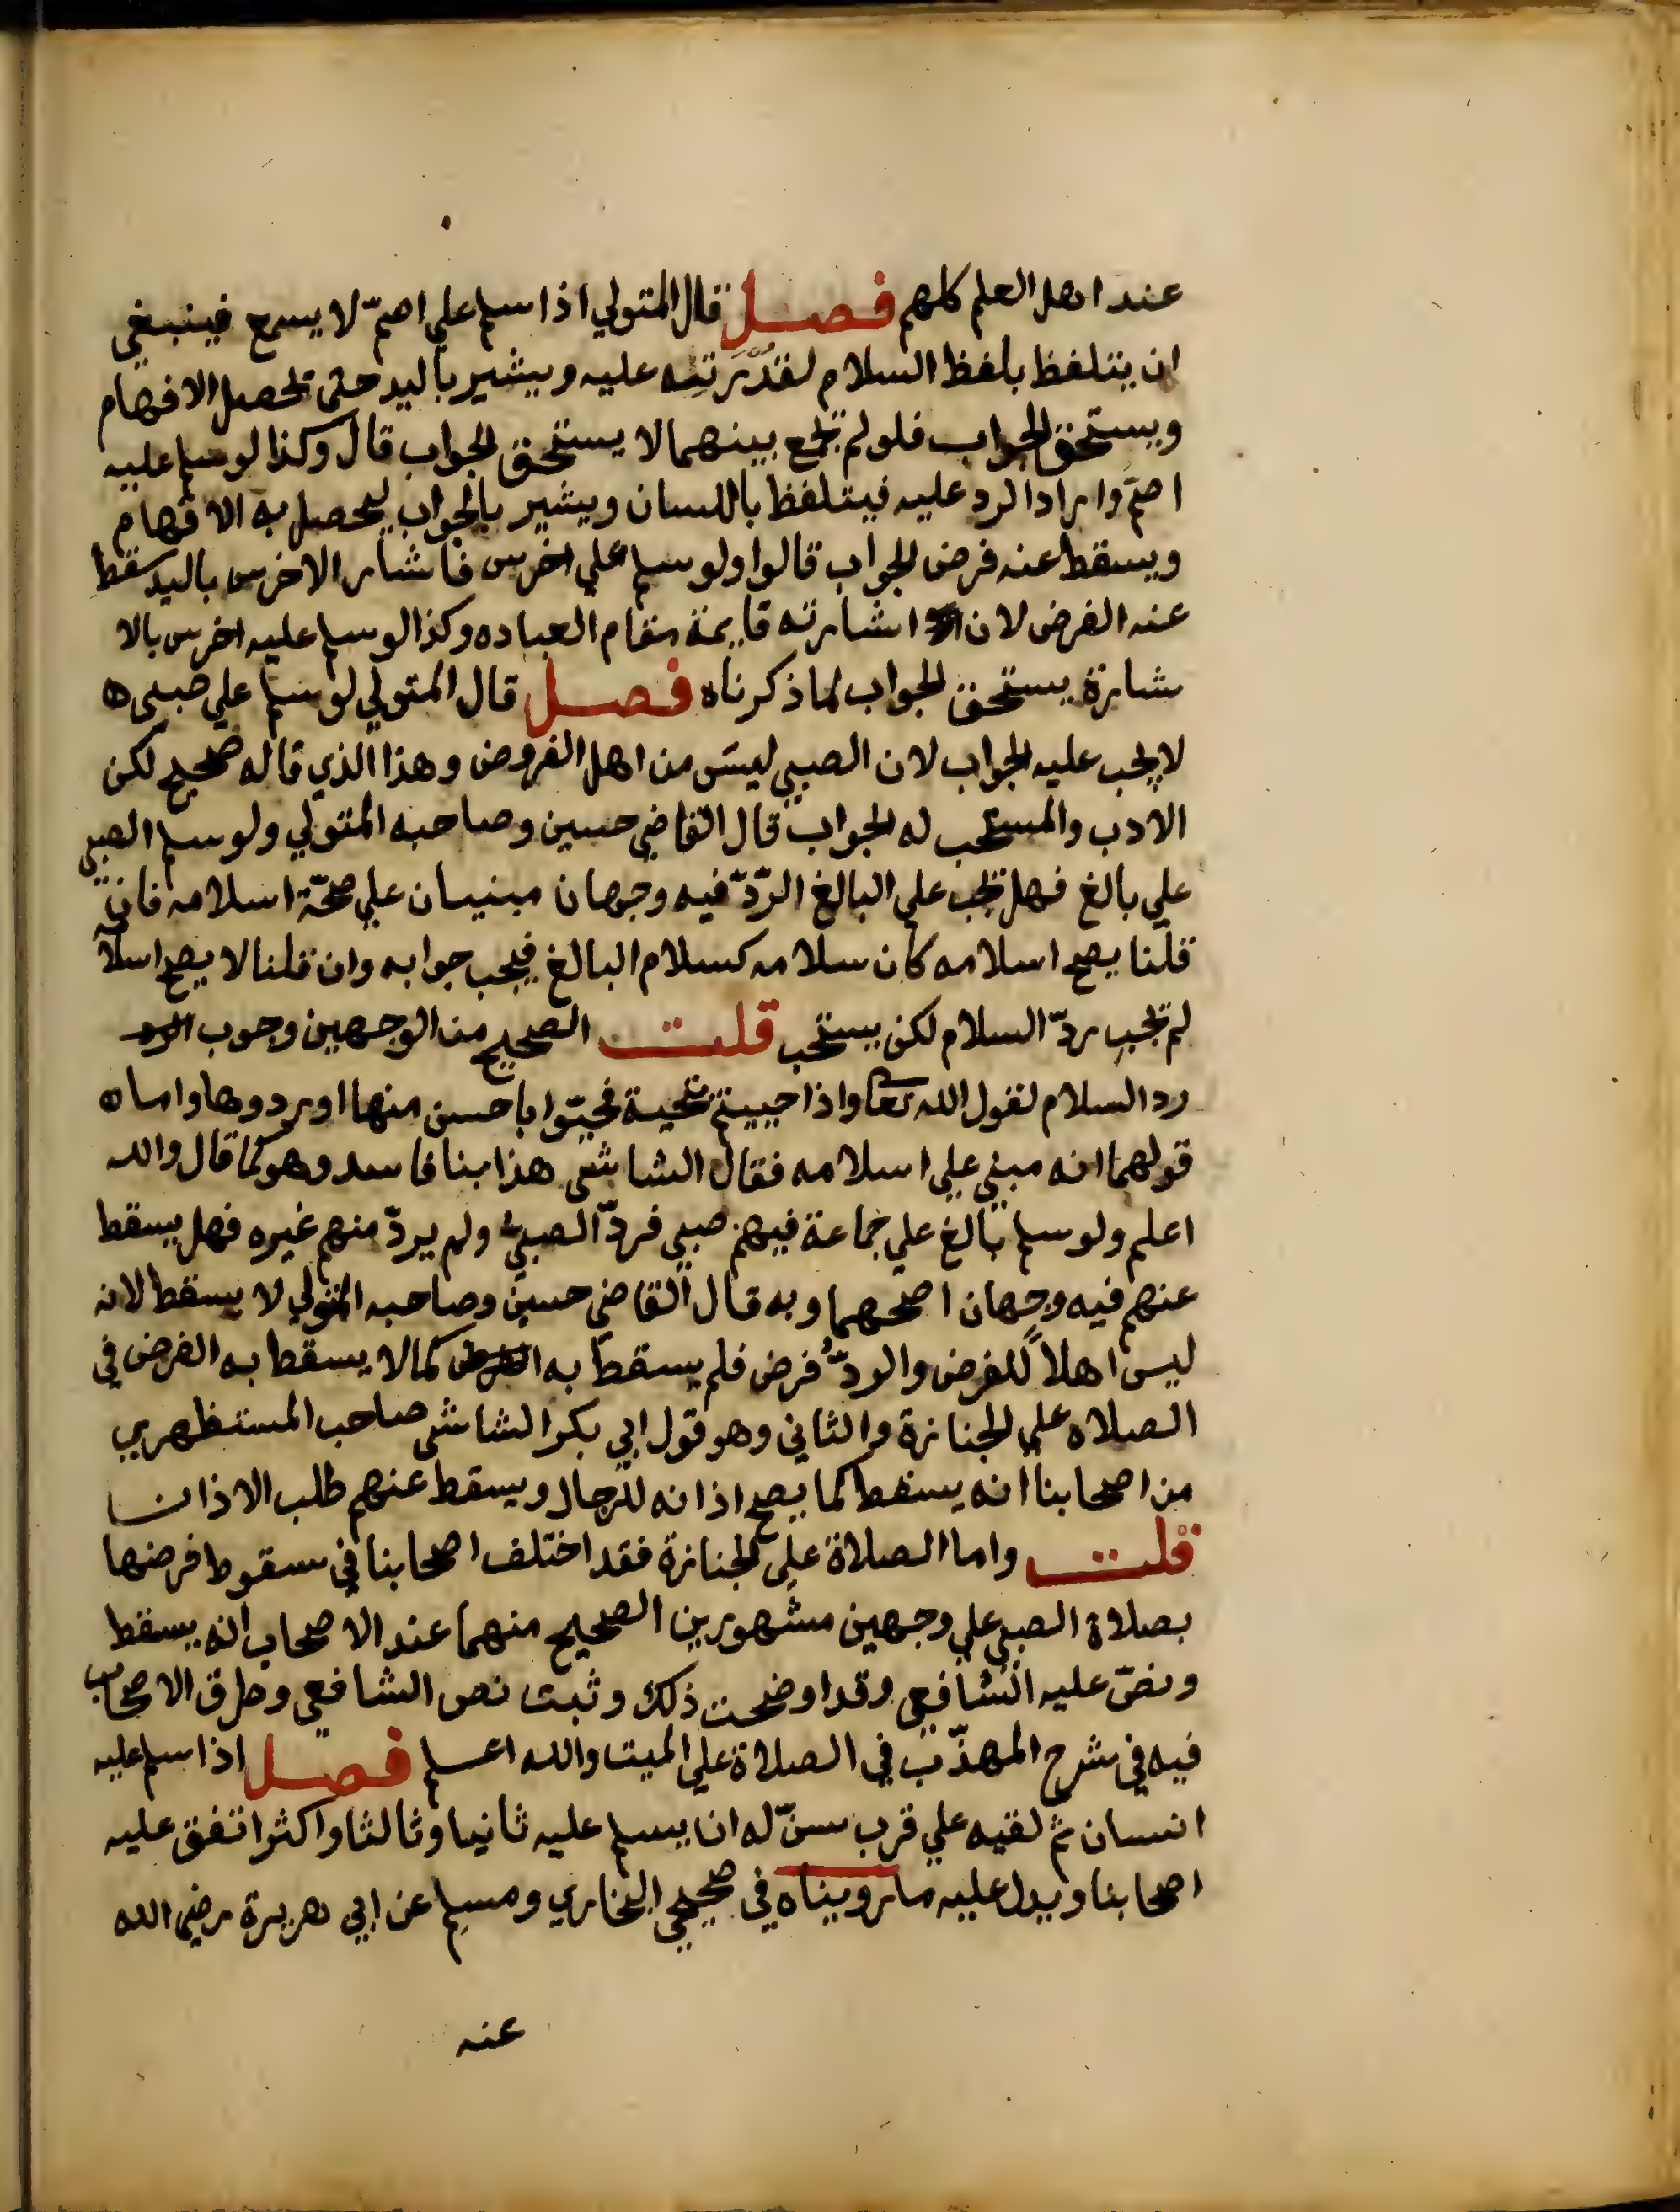 عند اهل العلم كلهم فصل قال المتولي اذا سلم علي اصمّ لا يسمع فينبغي
ان يتلفظ بلفظ السلام لقدرته عليه ويشير باليد حتى يحصل الافهام
ويستحق الجواب فلو لم يجمع بينهما لا يستحق الجواب قال وكذا لو سلم عليه
اصمّ واراد الرد عليه فيتلفظ باللسان ويشير بالجواب ليحصل به الافهام
ويسقط عنه فرض الجواب قالوا ولو سلم علي اخرس فاشار الاخرس باليد سقط
عنه الفرض لان اشارته قايمة مقام العباده وكذا لو سلم عليه اخرس بالا
شارة يستحق الجواب لما ذكرناه فصل قال المتولي لو سلم علي صبي ه
لا يجب عليه الجواب لان الصبي ليس من اهل الفروض وهذا الذي قاله صحيح لكن
الادب والمستحب له الجواب قال القاضي حسين وصاحبه المتولي ولو سلم الصبي
علي بالغ فهل يجب علي البالغ الردّ فيه وجهان مبنيان علي صحّة اسلامه فان
قلنا يصح اسلامه كان سلامه كسلام البالغ فيجب جوابه وان قلنا لا يصح اسلامه
لم يجب ردّ السلام لكن يستحب قلت الصحيح من الوجهين وجوب الرد
رد السلام لقول الله تعا واذا حييتم بتحية فحيّوا باحسن منها او ردوها واما ه
قولهما انه مبني علي اسلامه فقال الشاشى هذا بنا فاسد وهو كما قال والله
اعلم ولو سلم بالغ علي جماعة فيهم صبي فردّ الصبيُ ولم يردّ منهم غيره فهل يسقط
عنهم فيه وجهان اصحهما وبه قال القاضي حسين وصاحبه المتولي لا يسقط لانه
ليس اهلاً للفرض والردُّ فرض فلم يسقط به الفرض كما لا يسقط به الفرض في
الصلاه علي الجنازة والثاني وهو قول ابي بكر الشاشى صاحب المستظهري
من اصحابنا انه يسقط كما يصح اذانه للرجال ويسقط عنهم طلب الاذان
قلت واما الصلاة علي الجنازة فقد اختلف اصحابنا في سقوط فرضها
بصلاة الصبي علي وجهين مشهورين الصحيح منهما عند الاصحاب انه يسقط
ونصّ عليه الشافعي وقد اوضحت ذلك وثبت نص الشافعي وطرق الاصحاب
فيه في شرح المهذّب في الصلاة علي الميت والله اعلم فصل اذا سلم عليه
انسان ثم لقيه علي قرب سنّ له ان يسلم عليه ثانيا وثالثا واكثر اتفق عليه
اصحابنا ويدل عليه ما رويناه في صحيحي البخاري ومسلم عن ابي هريرة رضي الله
عنه